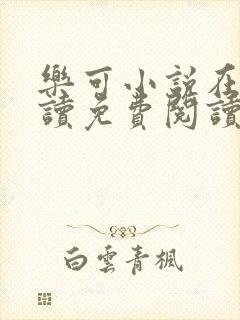 樂可小說在
讀免費閱讀
白雲青楓